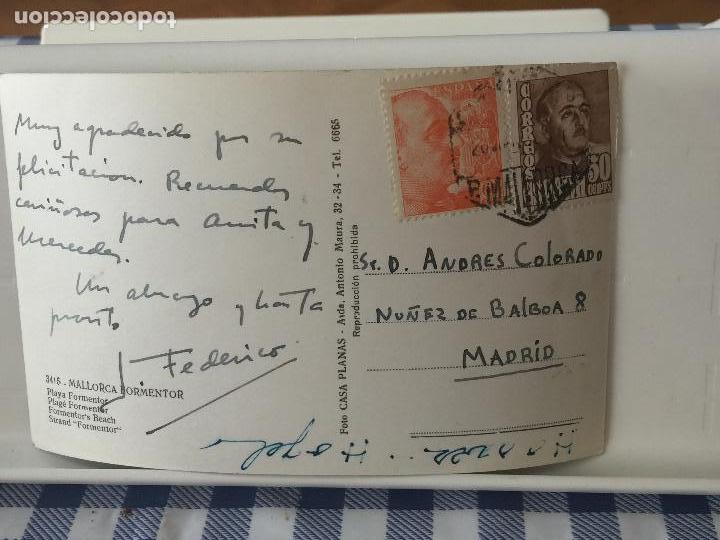 todocoleccion
Muy agradecido por su
felicitacion. Recuerdos
cariñosos para Anita y
Mercedes.
Un abrazo y hasta
pronto
Federico
3416 - MALLORCA FORMENTOR
Playa Formentor
Plage Formentor
Formentor's Beach
Strand "Formentor"
Foto CASA PLANAS - Avda. Antonio Maura, 32 - 34 - Tel. 6665
Reproducción prohibida
ESPAÑA
CORREOS
30
CENTS
Sr. D. ANDRES COLORADO
NUÑEZ DE BALBOA 8
MADRID